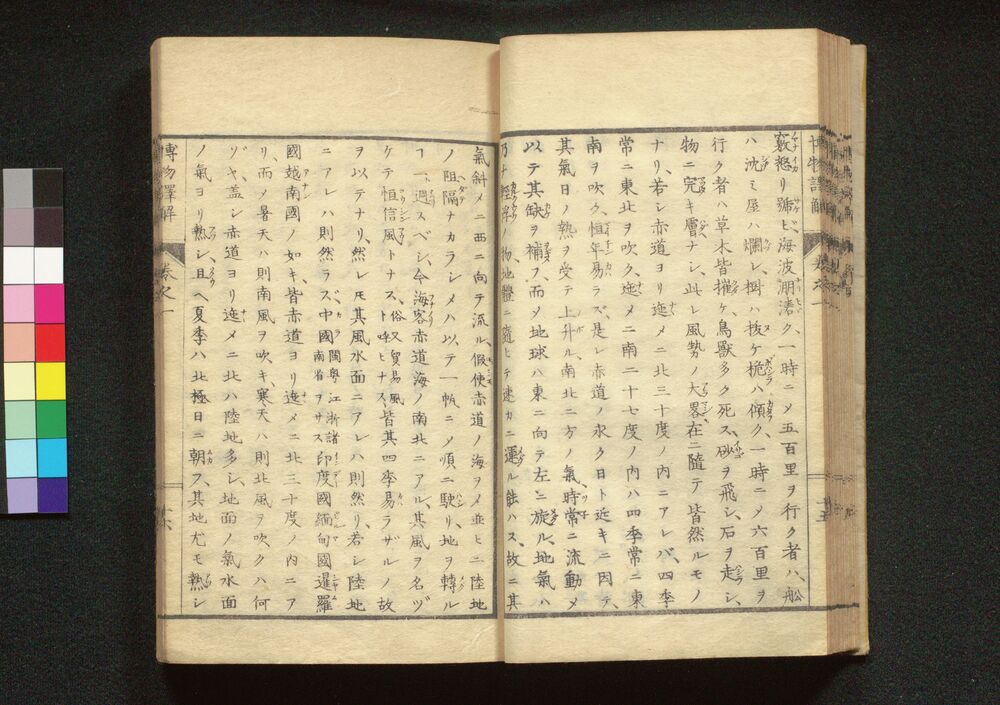 竅怒リ號ビ、海波湧沸ク、一時ニメ五百里ヲ行ク者ハ、舩
ハ沈ミ屋ハ爛レ、樹ハ拔ケ桅ハ傾ク、一時ニメ六百里ヲ
行ク者ハ草木皆摧ケ、鳥獸多ク死ス、砂ヲ飛シ、石ヲ走シ、
物ニ完キ膚ナシ、此レ風勢ノ大畧在ニ隨テ皆然ルモノ
ナリ、若シ赤道ヨリ迤メニ北三十度ノ内ニアレバ、四季
常ニ東北ヲ吹ク、迤メニ南二十七度ノ内ハ四季常ニ東
南ヲ吹ク、恒年易ラズ、是レ赤道ノ永ク日ト近キニ因テ、
其氣日ノ熱ヲ受テ上升ル、南北二方ノ氣、時常ニ流動メ
以テ其缺ヲ補フ、而メ地球ハ東ニ向テ左ニ旋ル、地氣ハ
乃ナ輕浮ノ物、地體ニ隨ヒテ速カニ運ル能ハス、故ニ其
氣斜メニ西ニ向テ流ル、假使赤道ノ海ヲメ並ヒニ陸地
ノ阻隔ナカラシメハ以テ一帆ニメ順ニ駛リ、地ヲ轉ル
ヿ一週スベシ、今海客赤道海ノ南北ニアル、其風ヲ名ヅ
ケテ恒信風トナス、俗又貿易風ト呼ヒナス、皆其四季易ラザルノ故
ヲ以テナリ、然レ𪜈其風水面ニアレハ則然リ、若シ陸地
ニアレハ則然ラス、中國閩粤江浙諸南省ヲサス印度國緬甸國暹羅
國越南國ノ如キ、皆赤道ヨリ迤メニ北三十度ノ内ニア
リ、而メ暑天ハ則南風ヲ吹キ、寒天ハ則北風ヲ吹クハ何
ゾヤ、盖シ赤道ヨリ迤メニ北ハ陸地多シ、地面ノ氣水面
ノ氣ヨリ熱シ、且ヘ夏季ハ北極日ニ朝フ、其地尤モ熱シ
博物譯解
巻之一